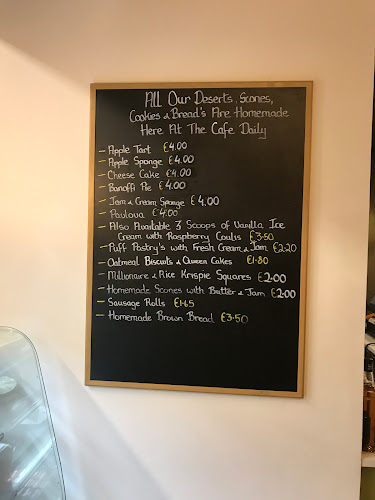 All Our Deserts, Scones,
Cookies & Bread's Are Homemade
Here At The Cafe Daily
– Apple Tart €4.00
– Apple Sponge €4.00
– Cheese Cake €4.00
– Banoffi Pie €4.00
– Jam & Cream Sponge €4.00
– Pavlova €4.00
– Also Available 3 Scoops of Vanilla Ice
Cream with Raspberry Coulis €3.50
– Puff Pastry's with Fresh Cream & Jam €2.20
– Oatmeal Biscuits & Queen Cakes €1.80
– Millionaire & Rice Krispie Squares €2.00
– Homemade Scones with Butter & Jam €2.00
– Sausage Rolls €1.65
– Homemade Brown Bread €3.50